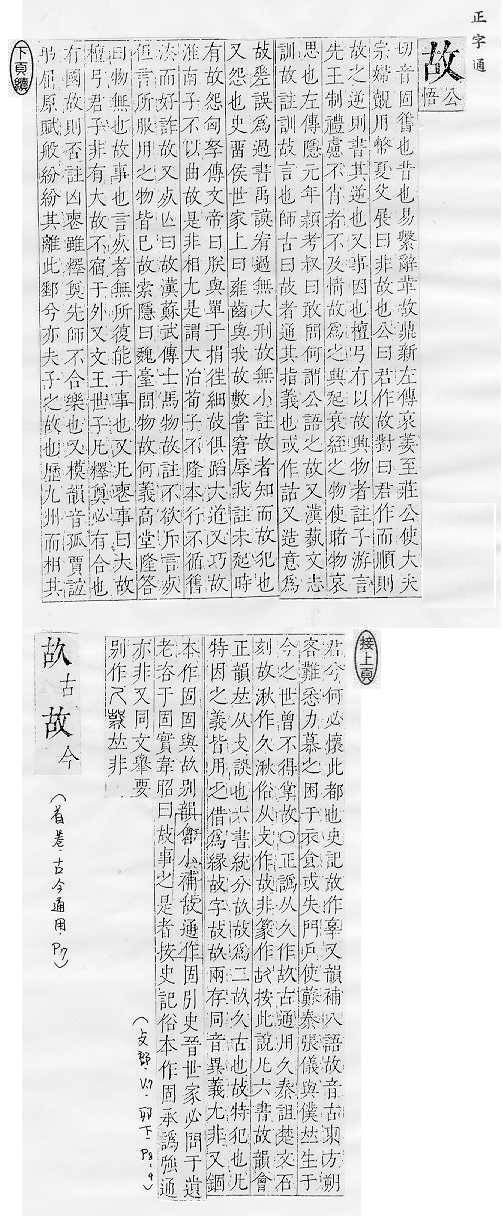 正字通
故 公悟
切音固舊也昔也易繫辭革故鼎新左傳哀姜至莊公使大夫
宗婦覿用幣夏父展曰非故也公曰君作故對曰君作而順則
故之逆則書其逆也又事因也檀弓有以故興物者註子游言
先王制禮慮不肖者不及情故爲之典起衰絰之物使睹物哀
思也左傳隱元年頴考叔曰敢問何謂公語之故又漢藝文志
訓故註訓故言也師古曰故者通其指義也或作詁又造意爲
故誤爲過書禹謨宥過無大刑故無小註故者知而故犯也
又怨也史畱侯世家上曰雍齒與我故數嘗窘辱我註未起時
有故怨匈孥傳文帝曰朕與單于捐徃細故俱蹈大道又巧故
淮南子不以曲故是非相尤是謂大治荀子不隆本行不循舊
法而好詐故又死亾曰故漢蘇武傳士馬物故註不欲斥言死
但言所服用之物皆巳故索隱曰魏臺問物故何義高堂隆答
曰物無也故事也言死者無所復能于事也又凡喪事曰大故
檀弓君子非有大故不宿于外又文王世子凡釋奠必有合也
有國故則否註凶喪雖釋奠先師不合樂也又模韻音孤賈誼
弔屈原賦般紛紛其離此郵兮亦夫子之故也歷九州而相其
下頁續
接上頁
君兮何必懷此都也史記故作辜又韻補入語故音古東方朔
客難悉力慕之困于衣食或失門戶使蘇秦張儀與僕𠀤生于
今之世曾不得掌故○正譌从久作故古通用久秦詛楚文石
刻故湫作久湫俗从攴作故非篆作按此說凡六書故韻會
正韻𠀤从攴誤也六書統分故故爲二故久古也故特犯也凡
特因之義皆用之借爲緣故字故故兩存同音異義尤非又錮
本作固固與故別韻會小補故通作固引史晉世家必問于遺
老咨于固實韋昭曰故事之是者按史記俗本作固承譌強通
亦非又同文舉要
別作𠀤非
(攴部.V.7.卯下.P8.9)
故古故今
(首卷.古今通用.P7)